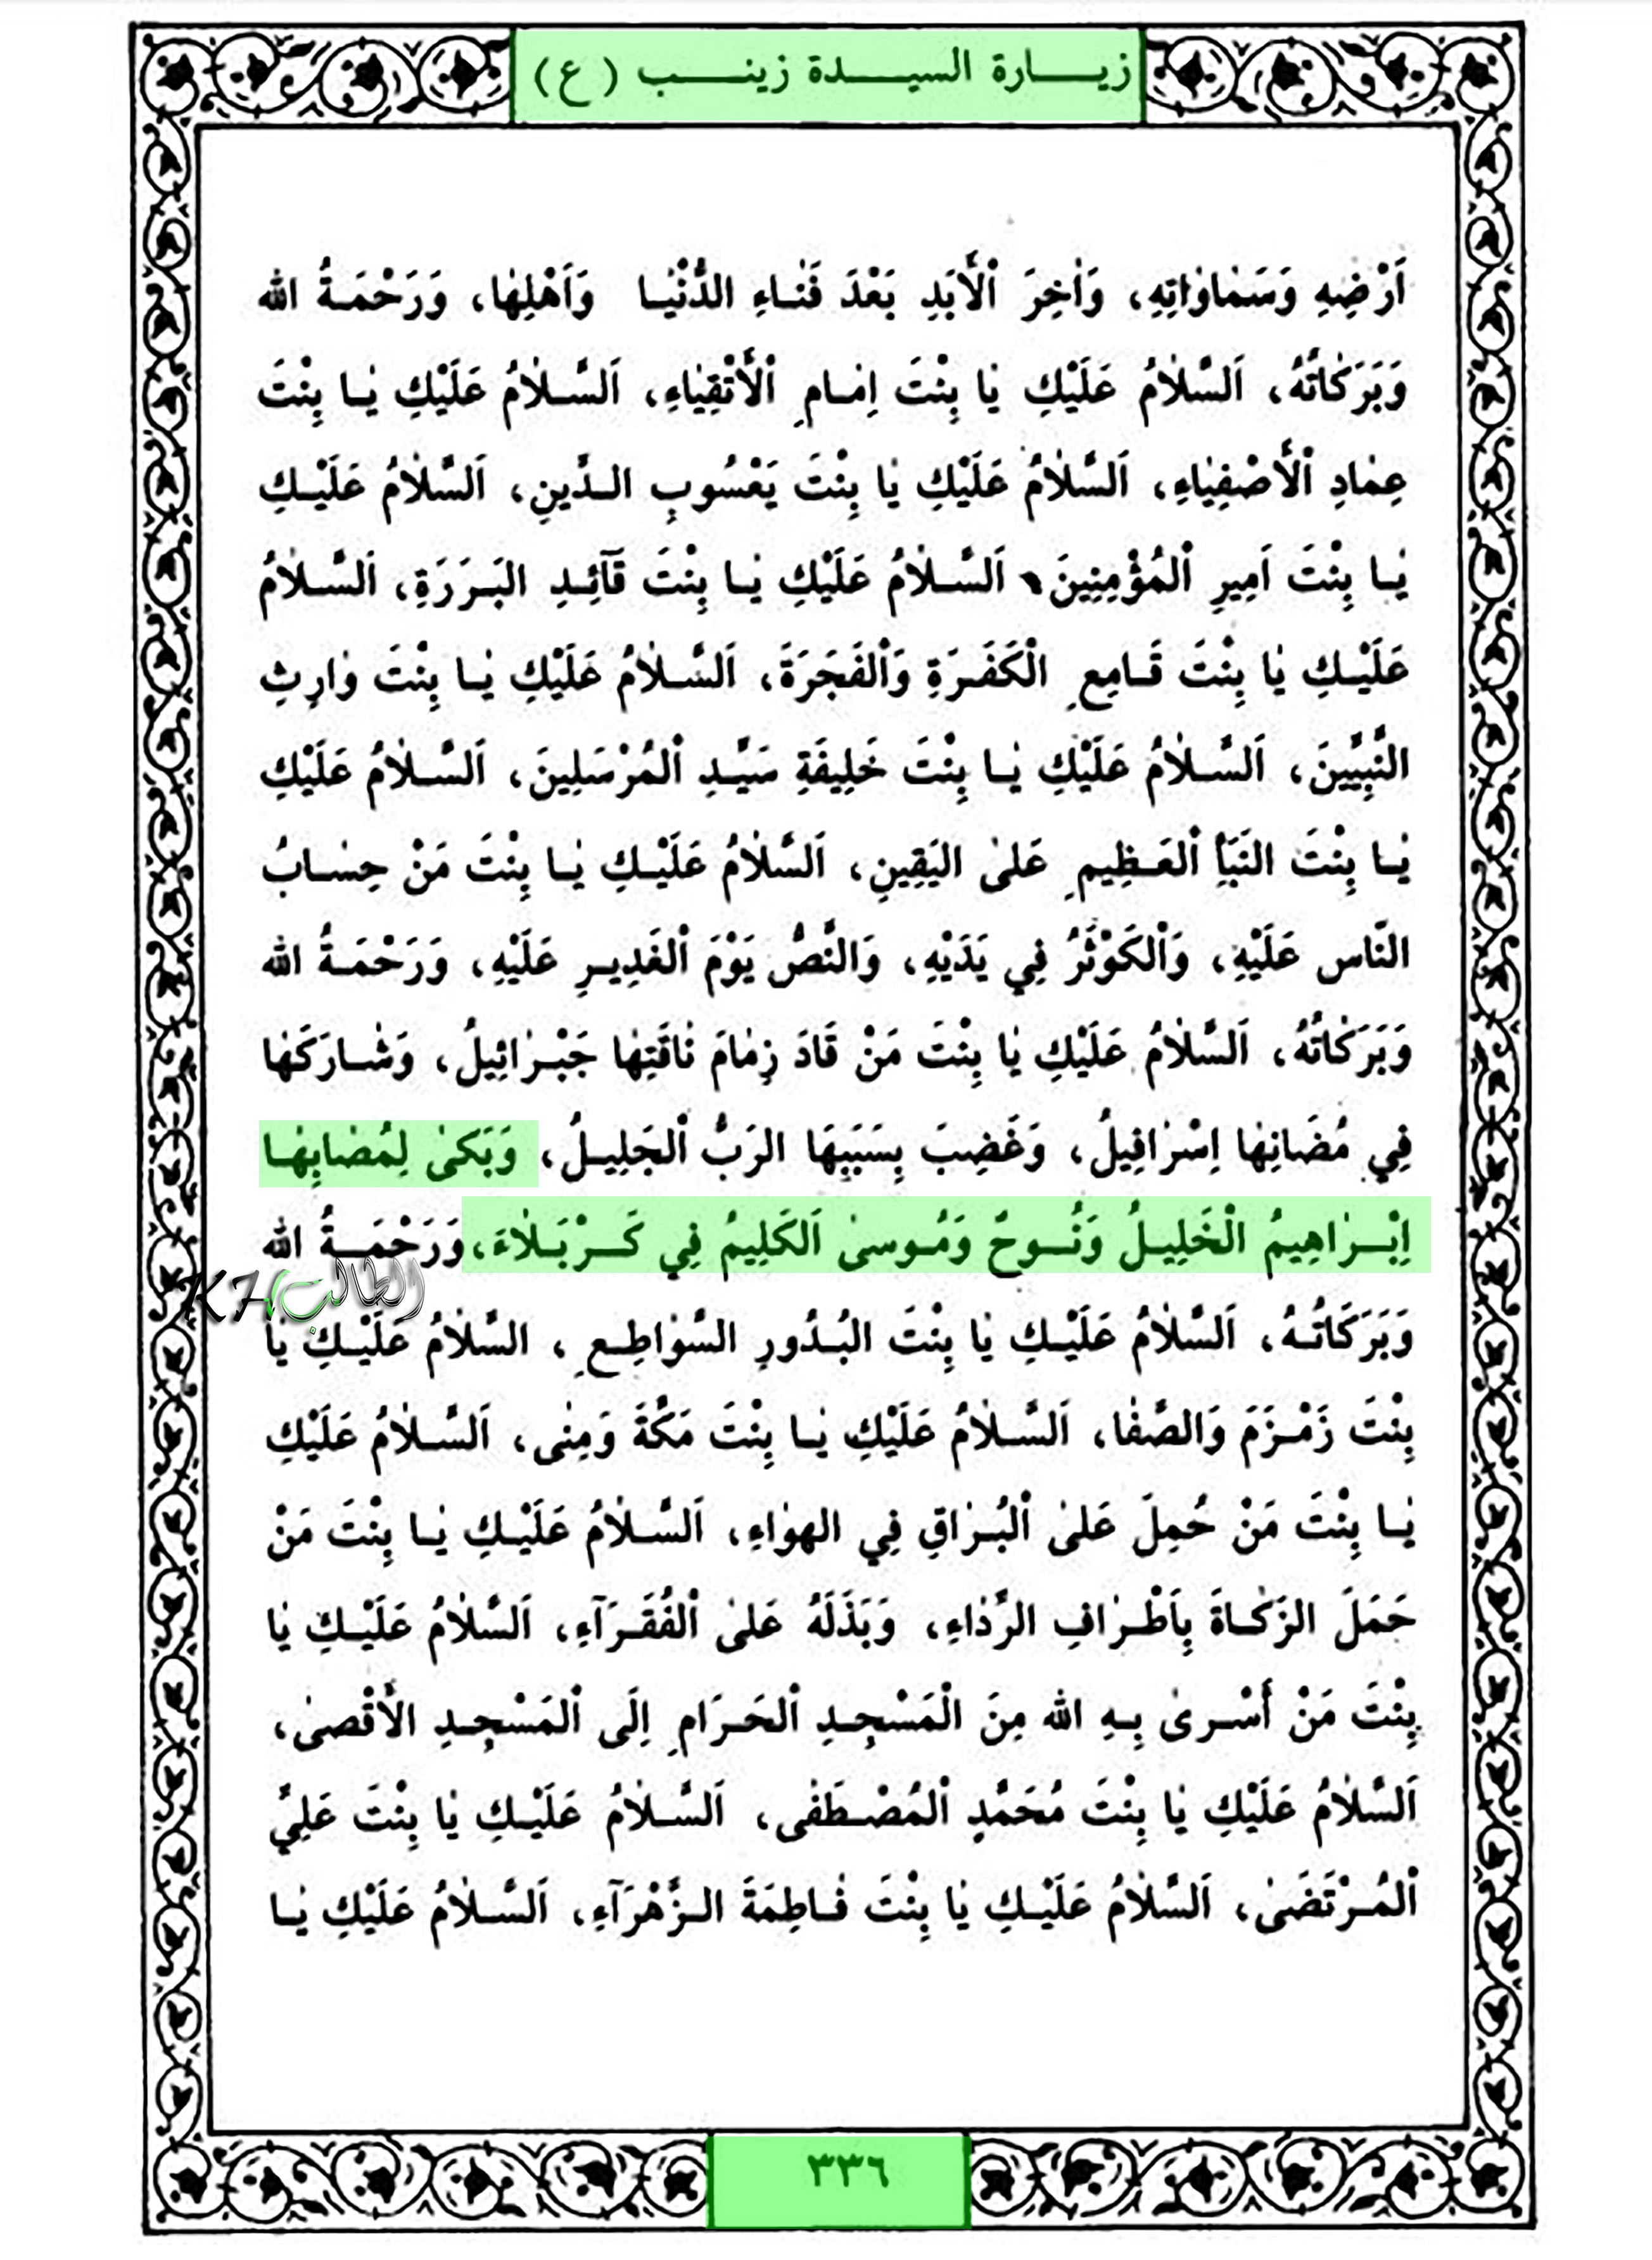 زيــارة السيــدة زينــب ( ع )
اَرْضِهِ وَسَمٰاوٰاتِهِ، وَاٰخِرَ اْلأَبَدِ بَعْدَ فَنٰـاءِ الدُّنْيٰـا وَاَهْلِهٰا، وَرَحْمَـةُ الله
وَبَرَكٰاتُهُ، اَلسَّلاٰمُ عَلَيْكِ يٰا بِنْتَ اِمٰـامِ اْلأَتْقِيٰاءِ، اَلسَّـلاٰمُ عَلَيْكِ يٰـا بِنْتَ
عِمٰادِ اْلأَصْفِيٰاءِ، اَلسَّلاٰمُ عَلَيْكِ يٰا بِنْتَ يَعْسُوبِ الـدِّينِ، اَلسَّلاٰمُ عَلَيْـكِ
يٰـا بِنْتَ اَمِيرِ اْلمُؤْمِنِينَ، اَلسَّـلاٰمُ عَلَيْكِ يٰـا بِنْتَ قَآئِـدِ البَـرَرَةِ، اَلسَّـلاٰمُ
عَلَيْـكِ يٰا بِنْتَ قَـامِعِ الْكَفَـرَةِ وَاْلفَجَرَةَ، اَلسَّـلاٰمُ عَلَيْكِ يٰـا بِنْتَ وٰارِثِ
النَّبِيِّينَ، اَلسَّـلاٰمُ عَلَيْكِ يٰـا بِنْتَ خَلِيفَةِ سَيِّـدِ اْلمُرْسَلِينَ، اَلسَّـلاٰمُ عَلَيْكِ
يٰـا بِنْتَ النَبَأِ اْلعَـظِيمِ عَلىٰ اليَقِينِ، اَلسَّلاٰمُ عَلَيْـكِ يٰـا بِنْتَ مَنْ حِسٰـابُ
النّاس عَلَيْهِ، وَاْلكَوْثَرُ فِي يَدَيْهِ، وَالنَّصُّ يَوْمَ اْلغَدِيـرِ عَلَيْهِ، وَرَحْمَـةُ الله
وَبَرَكٰاتُهُ، اَلسَّلاٰمُ عَلَيْكِ يٰا بِنْتَ مَنْ قَادَ زِمٰامَ نٰاقَتِهٰا جَبْـرٰائِيلُ، وَشٰـارَكَهٰا
فِي مُصَابِهٰا اِسْرٰافِيلُ، وَغَضِبَ بِسَبَبِهَا الرَبُّ اْلجَلِيـلُ، وَبَكىٰ لِمُصٰابِهٰـا
اِبْـرٰاهِيمُ الْخَلِيـلُ وَنُـوحٌ وَمُـوسىٰ اَلكَلِيمُ فِي كَـرْبَـلاٰءَ، وَرَحْمَـةُ الله
الطالب KH
وَبَرَكَاتُـهُ، اَلسَّلاٰمُ عَلَيْـكِ يٰا بِنْتَ البُـدُورِ السَّوٰاطِـعِ، السَّلاٰمُ عَلَيْـكِ يٰا
بِنْتَ زَمْـزَمَ وَالصَّفٰا، اَلسَّـلاٰمُ عَلَيْكِ يٰـا بِنْتَ مَكَّةَ وَمِنٰى، اَلسَّـلاٰمُ عَلَيْكِ
يٰـا بِنْتَ مَنْ حُمِلَ عَلىٰ اْلبُـرٰاقِ فِي الهوٰاءِ، اَلسَّـلاٰمُ عَلَيْـكِ يٰـا بِنْتَ مَنْ
حَمَلَ الزَكٰـاةَ بِاَطْـرٰافِ الرِّدٰاءِ، وَبَذَلَهُ عَلىٰ اْلفُقَـرَآءِ، اَلسَّلاٰمُ عَلَيْـكِ يٰا
بِنْتَ مَنْ أَسْـرىٰ بِـهِ الله مِنَ الْمَسْجِـدِ اْلحَـرَامِ اِلَى اْلمَسْجِـدِ الأَقْصىٰ،
اَلسَّلاٰمُ عَلَيْكِ يٰا بِنْتَ مُحَمَّدٍ اْلمُصْـطَفٰى، اَلسَّـلاٰمُ عَلَيْـكِ يٰا بِنْتَ عَلِيٍّ
اْلمُـرْتَضَىٰ، اَلسَّلاٰمُ عَلَيْـكِ يٰا بِنْتَ فٰـاطِمَةَ الـزَّهْرَآءِ، اَلسَّـلاٰمُ عَلَيْكِ يٰـا
٣٣٦